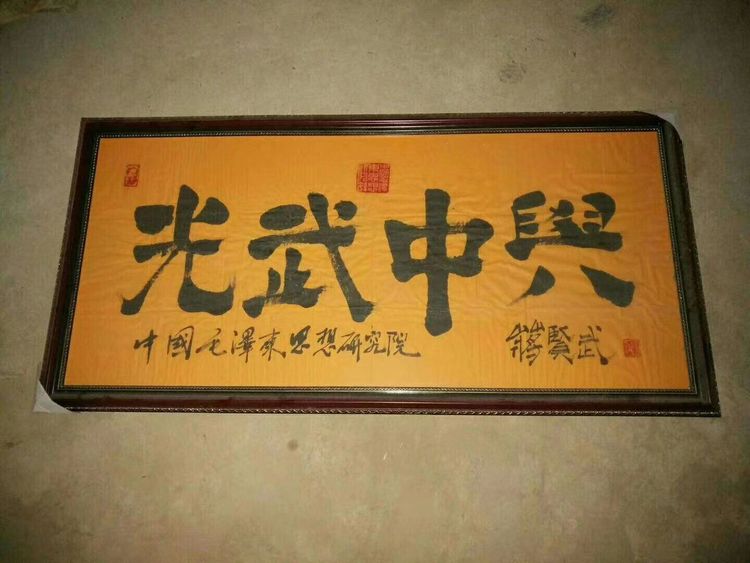 光武中興
中國毛澤東思想研究院 蔣賢武